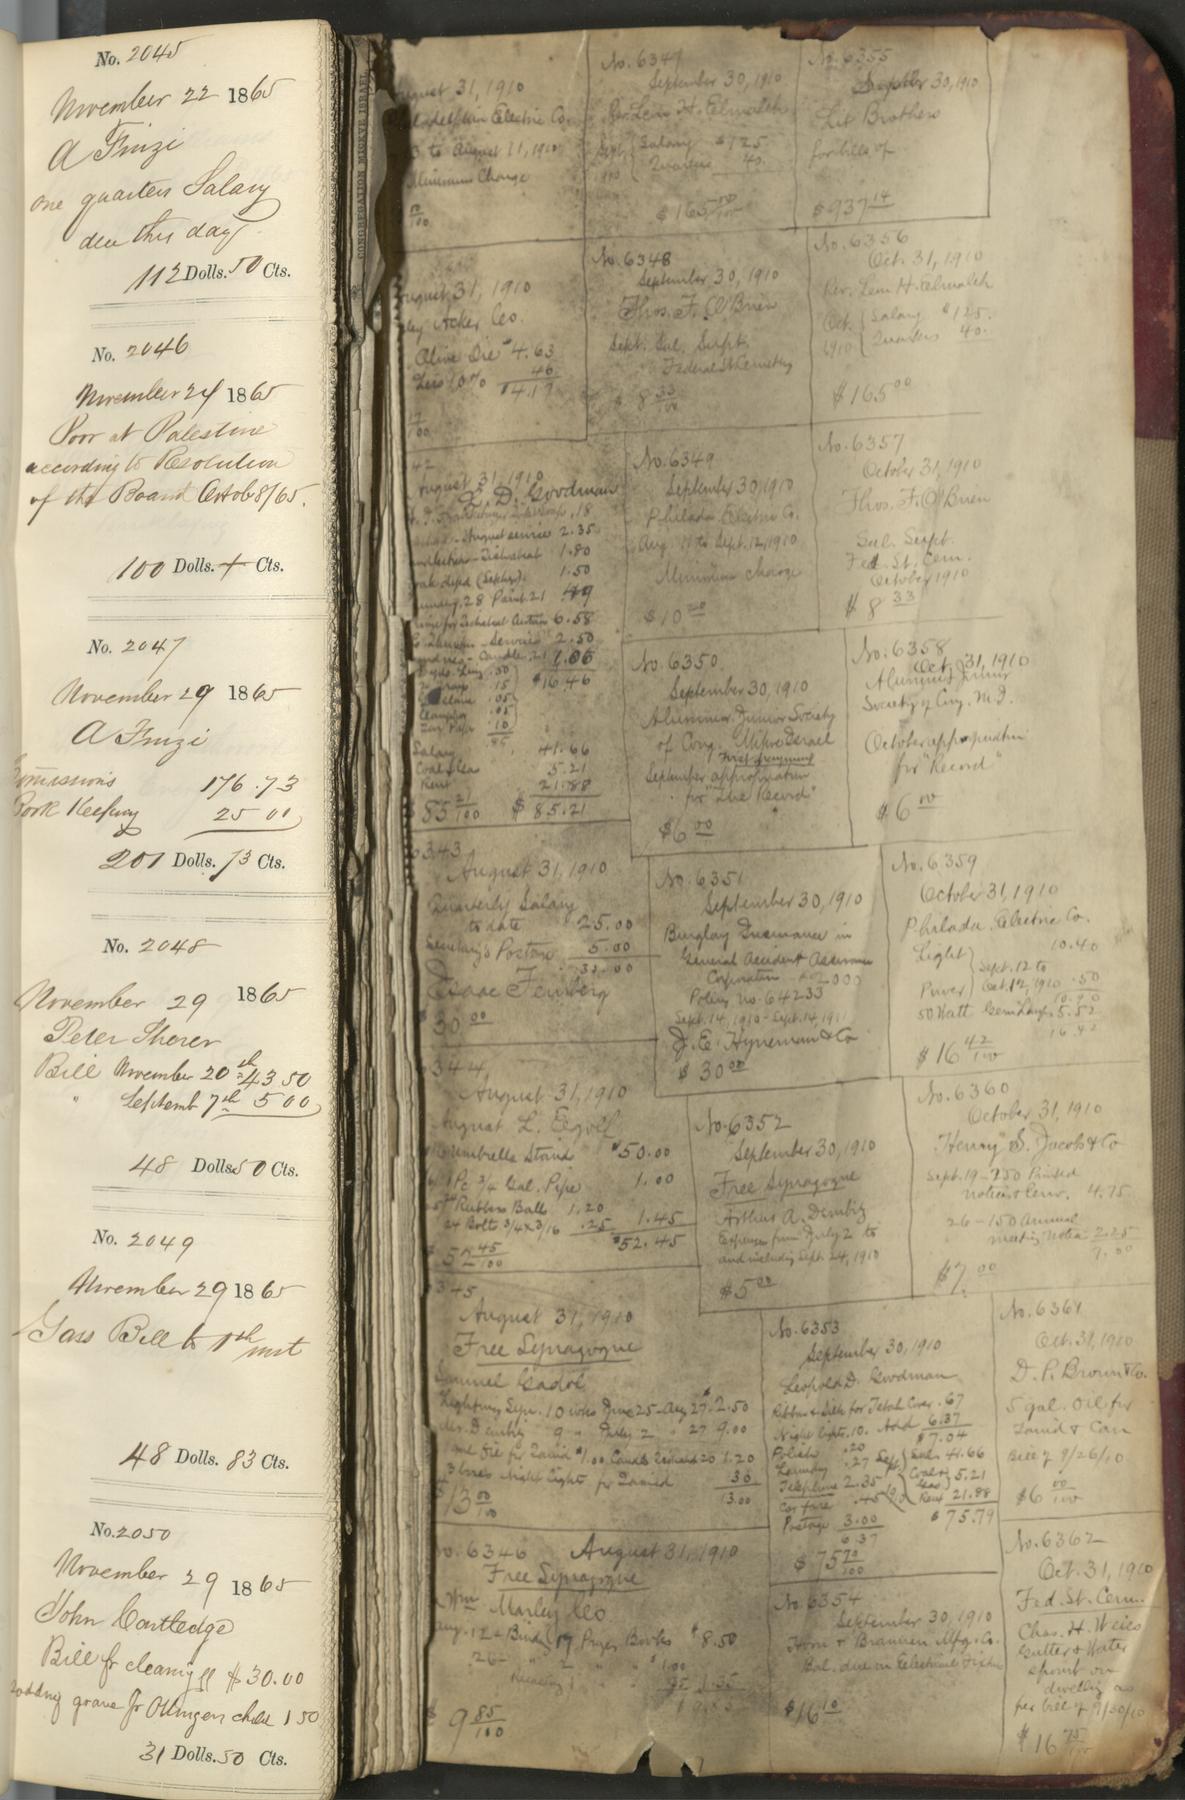 No. 2045
November 22 1865
A Finzi
one quarters Salary
due this day
112 Dolls. 50 Cts.
No. 2046
November 24 1865
Poor at Palestine
according to Resolution
of the Board Octob 8/65.
100 Dolls. + Cts.
No. 2047
November 29 1865
A Finzi
Commissions 176.73
Book Keeping 25 00
201 Dolls. 73 Cts.
No. 2048
November 29 1865
Peter
Bill November 20th 43 50
" Septemb 7th 5 00
48 Dolls 50 Cts.
No. 2049
November 29 1865
Gass Bill to
48 Dolls. 83 Cts.
No. 2050
November 29 1865
John Cartledge
Bill fr cleaning $30.00
sodding grave fr child 1 50
31 Dolls. 50 Cts.
CONGREGATION MICKVE ISRAEL
August 31, 1910
Philadelphia Electric Co.
to August 11, 1910
Minimum Charge
August 31, 1910
Acker Co.
Olive Oil $4.63
Less 10% 46
$4.17
August 31, 1910
L. D. Goodman
August service 2.35
1.80
1.50
6.58
2.50
$16.46
Salary 41.66
Coal & Gas 5.21
Rent 21.88
$85 21/100 $85.21
6343
August 31, 1910
Quarterly Salary
to date 25.00
Secretary's Postage 5.00
30.00
Isaac Feinberg
$30 00
6344
August 31, 1910
August L.
Umbrella Stand $50.00
1 Pc 3/4 Gal. Pipe 1.00
Rubber Balls 1.20
24 Bolts 3/4 x 3/16 .25 1.45
$52.45
$52 45/100
6345
August 31, 1910
Free Synagogue
Samuel
Lighting Syn. 10 wks June 25-Aug 27 2.50
Mr. Dembitz 9 " July 2 " 27 9.00
3 boxes Night Lights for Tamid 30
13.00
$13 00/100
No. 6346 August 31, 1910
Free Synagogue
Wm Marley & Co
Aug. 12 - Bindg 17 Prayer Books $8.50
$9 85/100
No. 6347
September 30, 1910
Rev. Leon H. Elmaleh
Sept. 1910 Salary $125
Quarters 40.
$165 00/100
No. 6348
September 30, 1910
Thos. F. O'Brien
Sept. Sal. Supt.
Federal St Cemetery
$8 33/100
No. 6349
September 30, 1910
Philada Electric Co.
Aug. 11 to Sept. 12, 1910
Minimum charge
No. 6350
September 30, 1910
Alumni Junior Society
of Cong. Mikve Israel
September appropriation
for "The Record"
$6 00
No. 6351
September 30, 1910
Burglary Insurance in
General Accident Assurance
Corporation $2000
Policy no. 64233
Sept. 14, 1910 - Sept. 14, 1911
J. E. Hyneman & Co
$30 00
No. 6352
September 30, 1910
Free Synagogue
Arthur A. Dembitz
Expenses from July 2 to
and including Sept. 24, 1910
$5 00
No. 6353
September 30, 1910
Leopold D. Goodman
Ribbon & Silk for Cover .67
Night lights .10. Add 6.37
$7.04
Polish .20
Laundry .27 Sept Sal. 41.66
Telephone 2.35 Coal & Gas 5.21
Car fare .45 Rent 21.88
Postage 3.00 $75.79
6.37
No. 6354
September 30, 1910
Horn & Brannen Mfg. Co.
Bal. due on Electrical Fixtures
$16 10
No. 6355
September 30, 1910
Lit Brothers
for bills of
$937 14
No. 6356
Oct. 31, 1910
Rev. Leon H. Elmaleh
Oct. 1910 Salary $125.
Quarters 40.
$165 00
No. 6357
October 31, 1910
Thos. F. O'Brien
Sal. Supt.
Fed. St. Cem.
October 1910
$8 33
No. 6358
Oct. 31, 1910
Alumni Junior
Society of Cong. M. I.
October appropriation
for "Record"
$6 00
No. 6359
October 31, 1910
Philada. Electric Co.
Light 10.40
Sept. 12 to
Power Oct. 12, 1910 .50
10.90
50 Watt Lamps 5.52
16.42
$16 42/100
No. 6360
October 31, 1910
Henry S. Jacobs & Co
Sept. 19 - 250 Printed
notices & Env. 4.75
26 - 150 Annual
meeting notices 2.25
7.00
$7. 00
No. 6361
Oct. 31, 1910
D. P. Brown & Co.
5 gal. oil for
Tamid & Can
Bill of 9/26/10
$6 00/100
No. 6362
Oct. 31, 1910
Fed. St. Cem.
Chas. H. Weiss
Gutter & Water
spout on
dwelling as
per bill of 9/30/10
$16 75/100